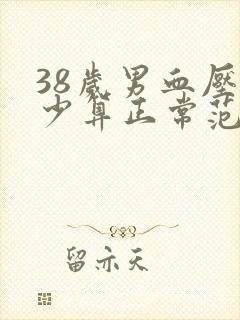 38歲男血壓
少算正常范
留亦天